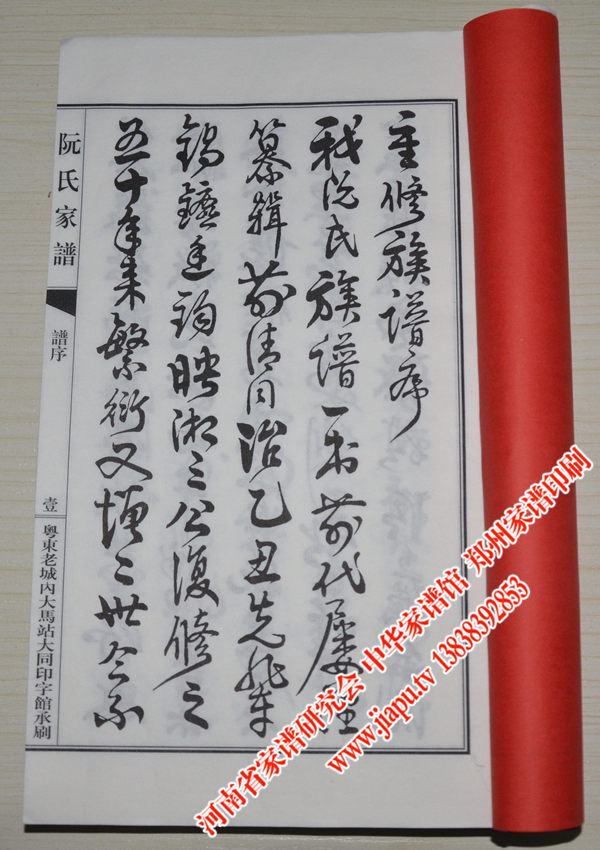 重修族譜序
我阮氏族譜一書前代屢經
纂輯前清同治乙丑先輩
鑣廷鈞映湘三公復修之
五十年來繁衍又增二世今不
阮氏家譜
譜序
壹
粵東老城內大馬站大同印字館承刷
河南省家谱研究会 中华家谱馆 郑州家谱印刷
www.jiapu.tv 13838392853